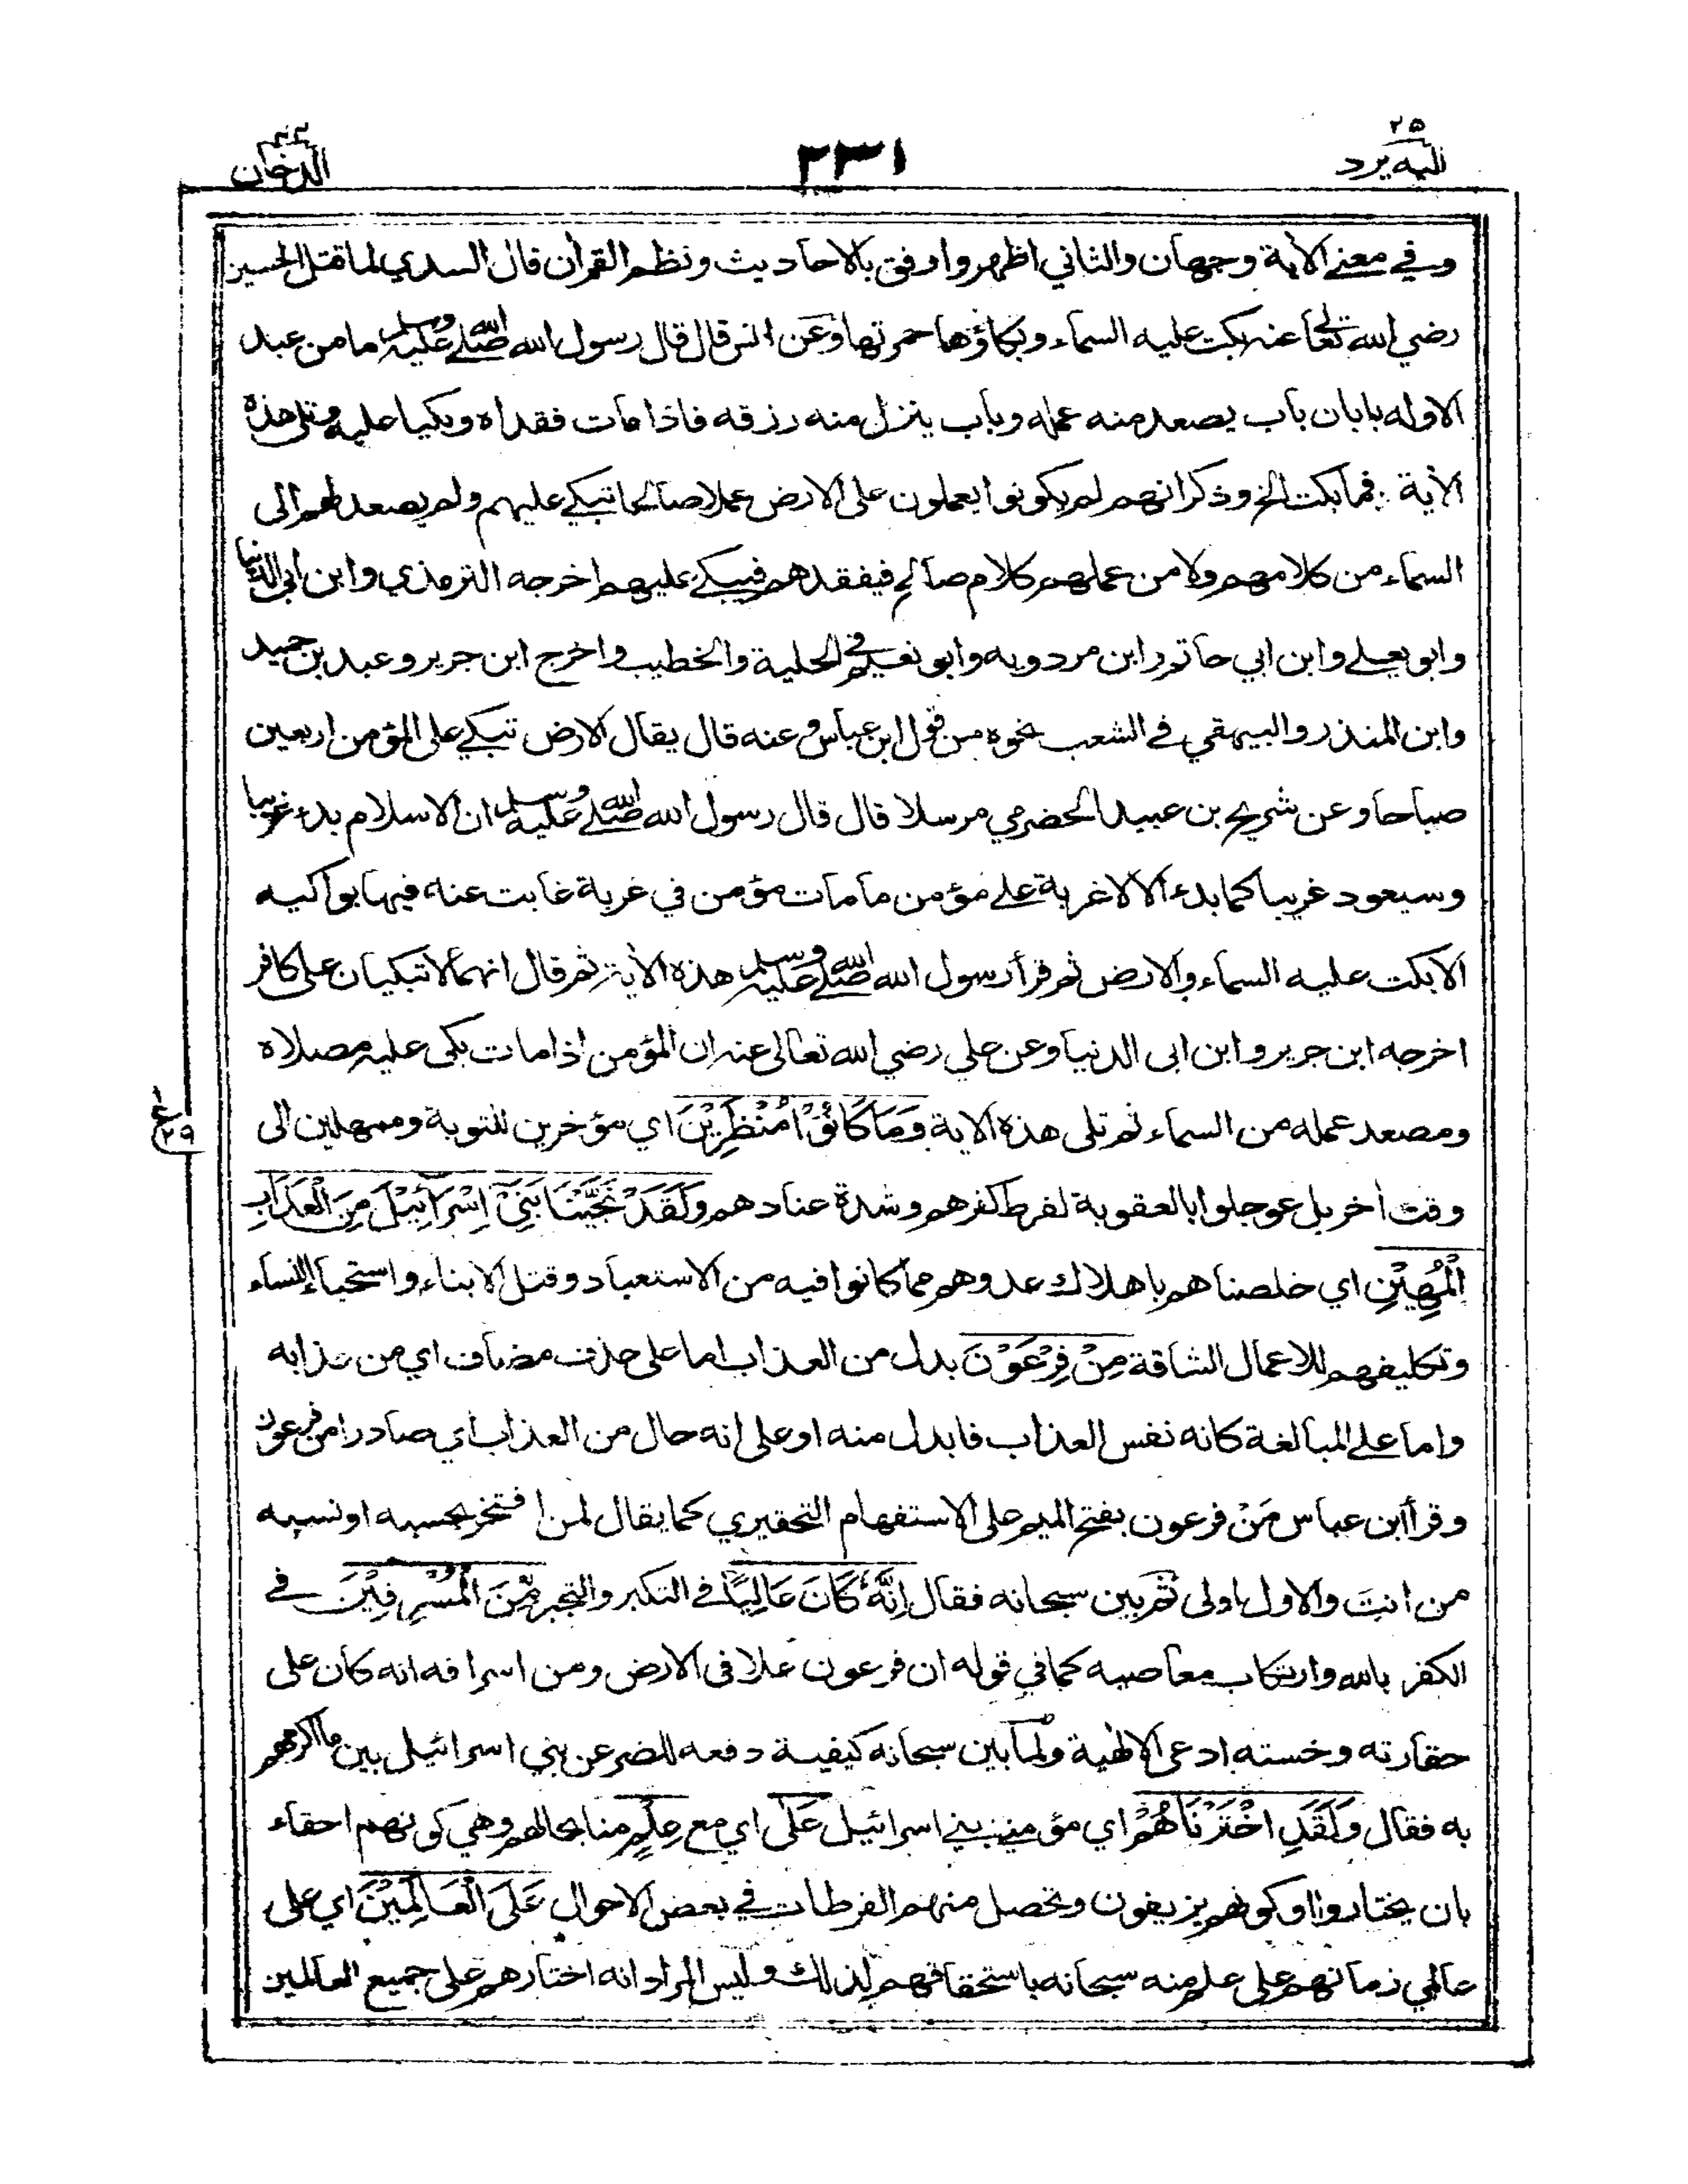 ٢٥
اليه يرد
٢٣١
٤٤
الدخان
وفي معنى الآية وجهان والثاني اظهر وارفق بالاحاديث ونظم القرآن قال السدي لما قتل الحسين
رضي الله تعالى عنه بكت عليه السماء وبكاؤها حمرتها وعن انس قال قال رسول الله صلى الله عليه وسلم ما من عبد
الا وله بابان باب يصعد منه عمله وباب ينزل منه رزقه فاذا مات فقداه وبكيا عليه وتلى هذه
الآية فما بكت الخ وذكر انهم لم يكونوا يعملون على الارض عملا صالحا تبكي عليهم ولم يصعد لهم الى
السماء من كلامهم ولا من عملهم كلام صالح فيفقدهم فيبكي عليهم اخرجه الترمذي وابن ابي الدنيا
وابو يعلى وابن ابي حاتم وابن مردويه وابو نعيم في الحلية والخطيب واخرج ابن جرير وعبد بن حميد
وابن المنذر والبيهقي في الشعب نحوه من قول ابن عباس وعنه قال يقال الارض تبكي على المؤمن اربعين
صباحا وعن شريح بن عبيد الحضرمي مرسلا قال قال رسول الله صلى الله عليه وسلم ان الاسلام بدء غريبا
وسيعود غريبا كما بدء ألا لا غربة على مؤمن ما مات مؤمن في غربة غابت عنه فيها بواكيه
الا بكت عليه السماء والارض ثم قرأ رسول الله صلى الله عليه وسلم هذه الآية ثم قال انهما لا تبكيان على كافر
اخرجه ابن جرير وابن ابى الدنيا وعن علي رضي الله تعالى عنه ان المؤمن اذا مات بكى عليه مصلاه
ومصعد عمله من السماء ثم تلى هذه الآية وَمَا كَانُوْا مُنْظَرِيْنَ اي مؤخرين للتوبة وممهلين الى
ع
٢٩
وقت أخر بل عوجلوا بالعقوبة لفرط كفرهم وشدة عنادهم وَلَقَدْ نَجَّيْنَا بَنِيْ اِسْرَآئِيْلَ مِنَ الْعَذَابِ
الْمُهِيْنِ اي خلصناهم باهلاك عدوهم مما كانوا فيه من الاستعباد وقتل الابناء واستحياء النساء
وتكليفهم للاعمال الشاقة مِنْ فِرْعَوْنَ بدل من العذاب اما على حذف مضاف اي من عذابه
واما على المبالغة كانه نفس العذاب فابدل منه او على انه حال من العذاب اي صادرا من فرعون
وقرأ ابن عباس مَنْ فرعون بفتح الميم على الاستفهام التحقيري كما يقال لمن افتخر بحسبه او نسبه
من انت والاول اولى ثم بين سبحانه فقال اِنَّهٗ كَانَ عَالِيًا في التكبر والتجبر مِّنَ الْمُسْرِفِيْنَ في
الكفر بالله وارتكاب معاصيه كما في قوله ان فرعون علا فى الارض ومن اسرافه انه كان على
حقارته وخسته ادعى الالهية ولما بين سبحانه كيفية دفعه للضر عن بني اسرائيل بين ما اكرمهم
به فقال وَلَقَدِ اخْتَرْنَاهُمْ اي مؤمني بني اسرائيل عَلٰى اي مع عِلْمٍ منا بحالهم وهي كونهم احقاء
بان يختاروا او كونهم يزيغون وتحصل منهم الفرطات في بعض الاحوال عَلَى الْعَالَمِيْنَ اي على
عالمي زمانهم على علم منه سبحانه باستحقاقهم لذلك وليس المراد انه اختارهم على جميع العالمين